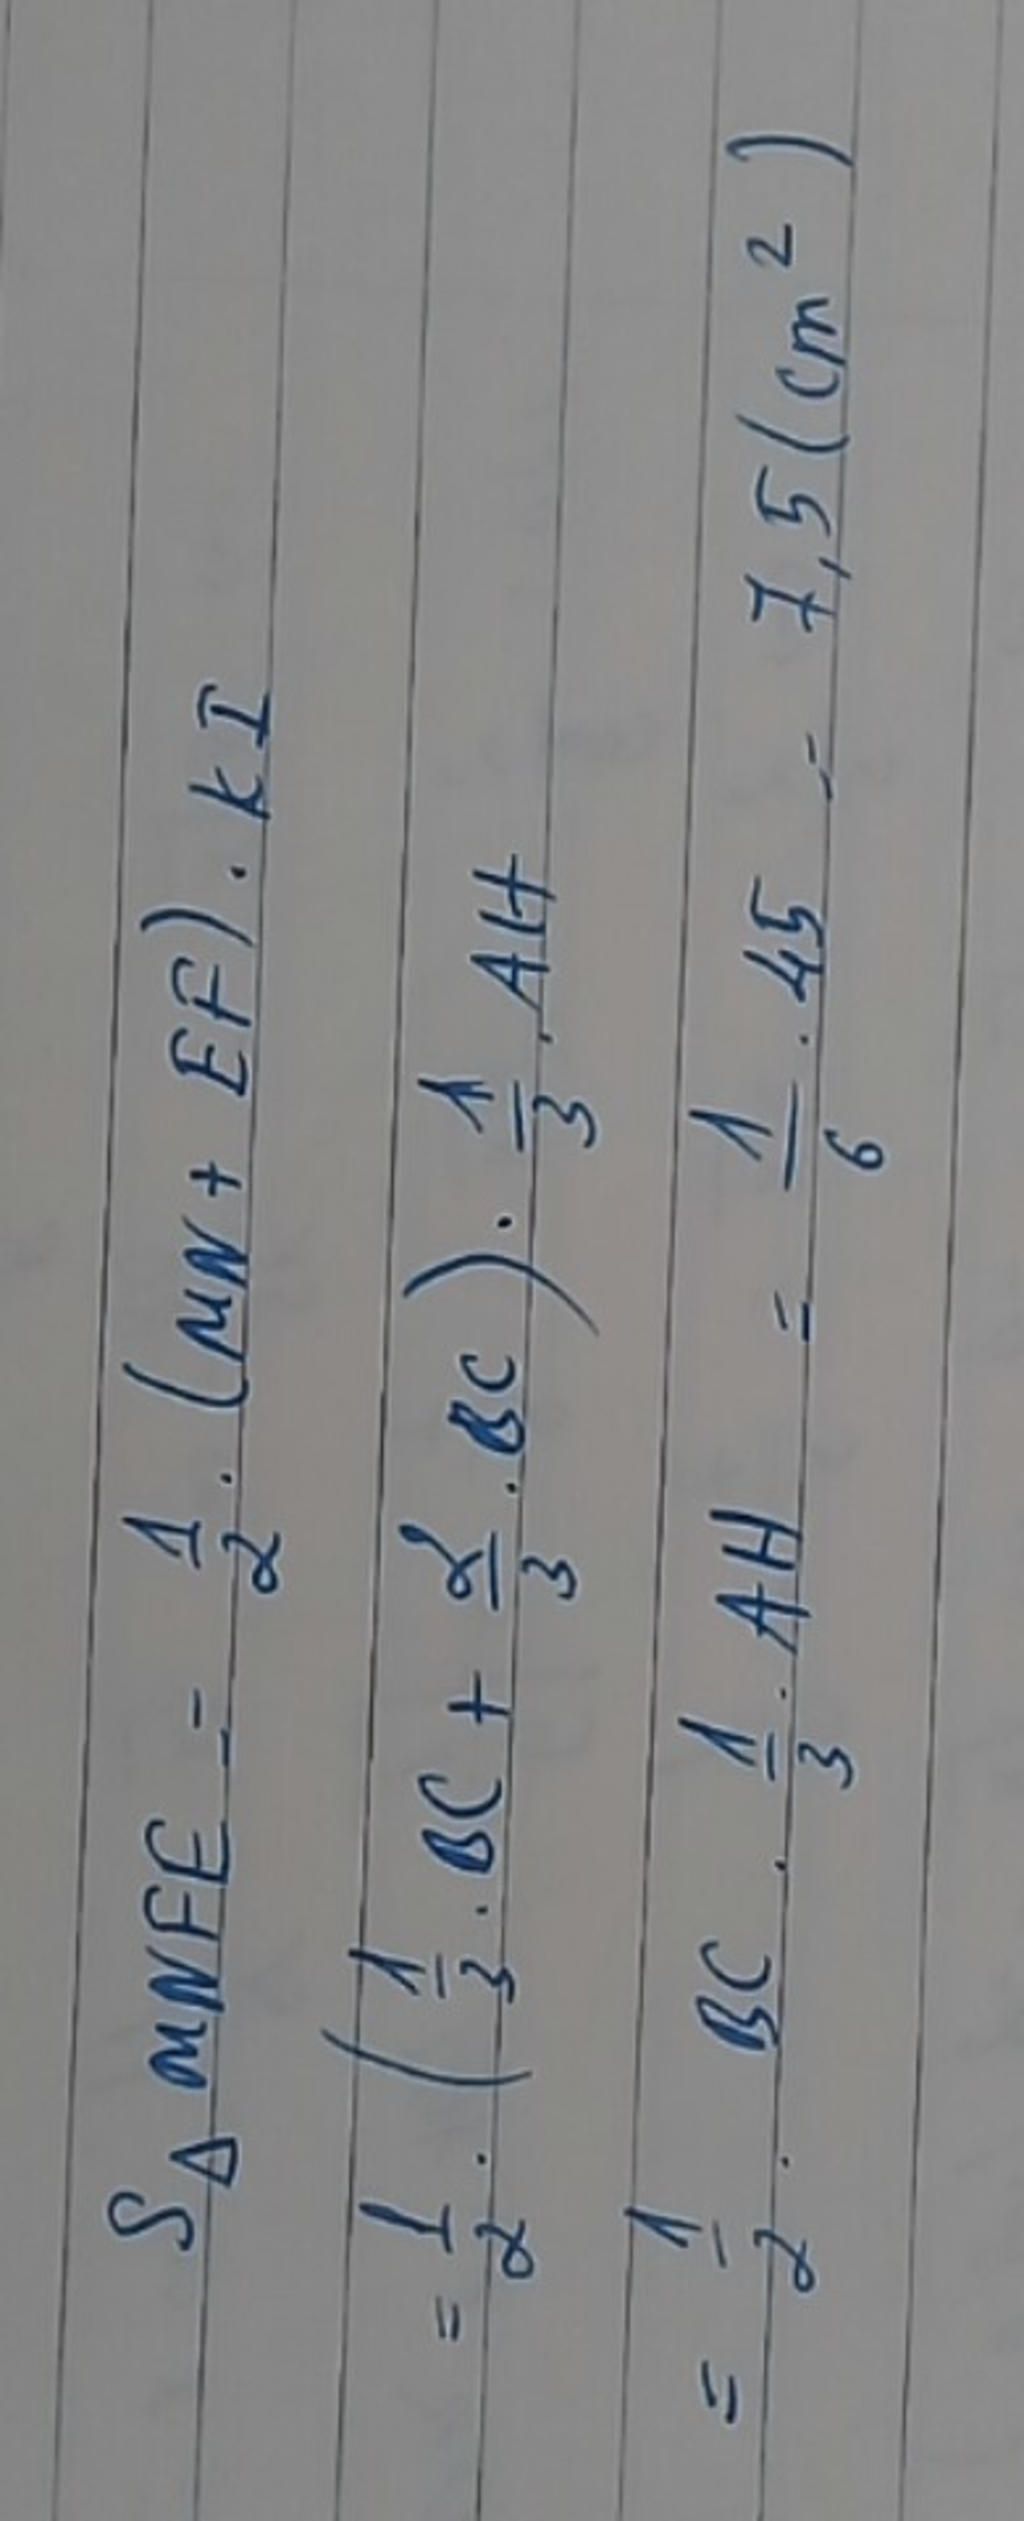 S Δ MNFE = 1/2 . (MN + EF) . kI
= 1/2 . (1/3 . BC + 2/3 . BC) . 1/3 . AH
= 1/2 . BC . 1/3 . AH = 1/6 . 45 = 7,5 (cm²)